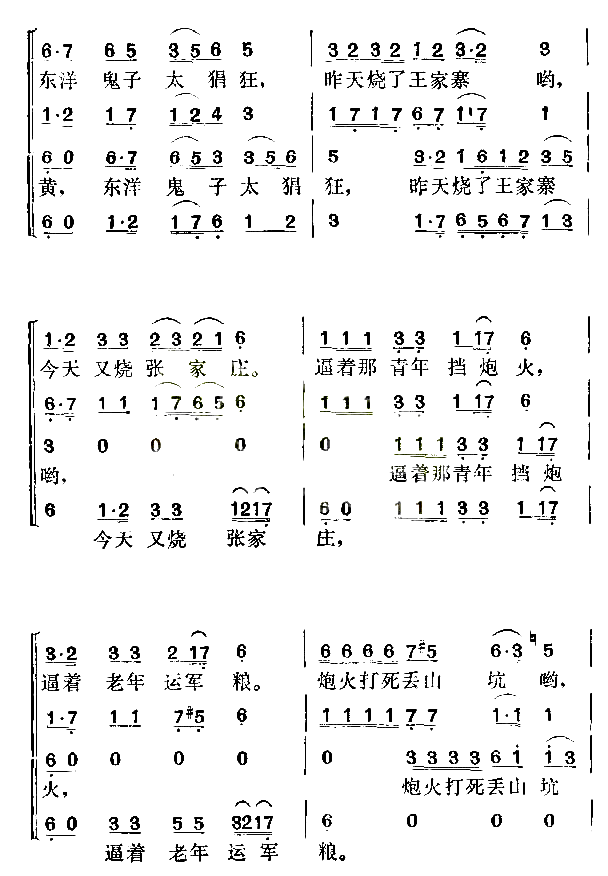 6·7 65 356 5 3232 12 3·2 3
东洋 鬼子 太 猖 狂, 昨天烧了王家寨 哟,
1·2 17 124 3 1717 67 117 1
60 6·7 653 356 5 3·2 1612 35
黄, 东洋 鬼 子 太 猖 狂, 昨天烧了王家寨
60 1·2 176 1 2 3 1·7 6567 13
1·2 33 23 21 6 111 33 1 17 6
今天 又烧 张 家 庄。 逼着那 青年 挡 炮 火,
6·7 11 17 65 6 111 33 1 17 6
3 0 0 0 0 111 33 1 17
哟, 逼着那青年 挡 炮
6 1·2 33 1217 60 111 33 1 17
今天 又烧 张家 庄,
3·2 33 2 17 6 6666 7#5 6·3 ♮5
逼着 老年 运军 粮。 炮火打死丢山 坑 哟,
1·7 11 7#5 6 1111 77 1·1 1
60 0 0 0 0 3333 61 13
火, 炮火打死丢山 坑
60 33 55 3217 6 0 0 0
逼着 老年 运 军 粮。